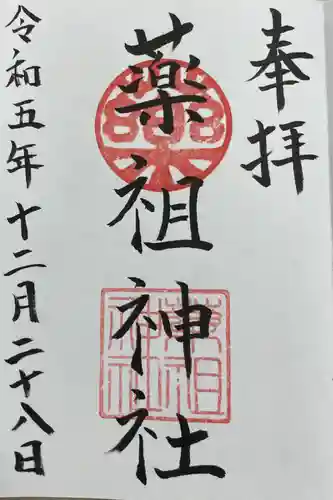 奉拝
薬祖神社
令和五年十二月二十八日